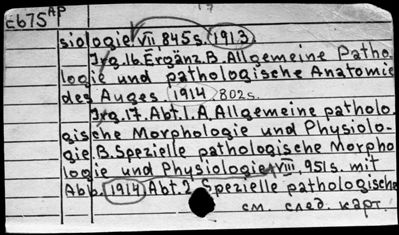 Eb75 AP 17
siologie. VII, 845s. 1913
Jrg.16. Ergänz.B. Allgemeine Patho-
logie und pathologische Anatomie
des Auges. 1914 802s.
Jrg.17. Abt.1. A. Allgemeine patholo-
gische Morphologie und Physiolo-
gie. B. Spezielle pathologische Morpho
logie und Physiologie. VIII, 951s. mit
Abb. 1914 Abt.2 Spezielle pathologische
см. след. карт.